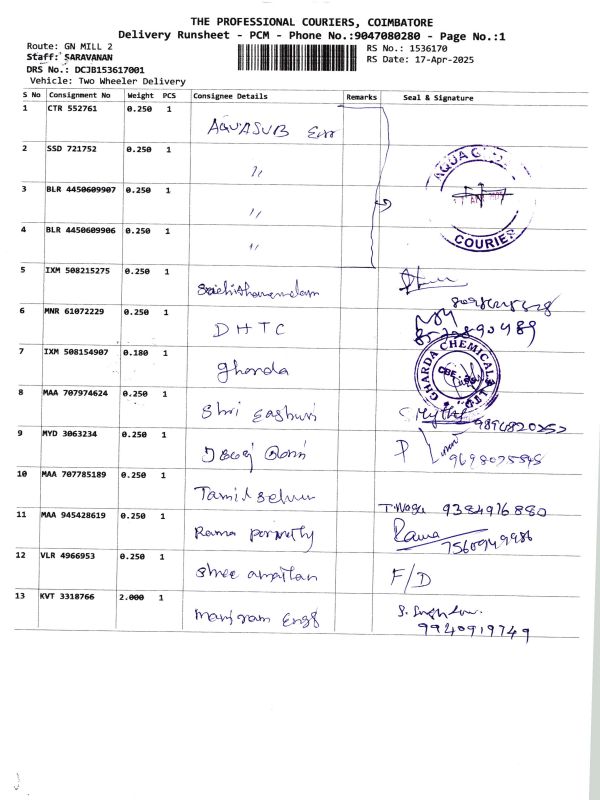 THE PROFESSIONAL COURIERS, COIMBATORE
Delivery Runsheet - PCM - Phone No.:9047080280 - Page No.:1
Route: GN MILL 2
RS No.: 1536170
Staff: SARAVANAN
RS Date: 17-Apr-2025
DRS No.: DCJB153617001
Vehicle: Two Wheeler Delivery
S No Consignment No Weight PCS Consignee Details Remarks Seal & Signature
1 CTR 552761 0.250 1 AQUASUB Engg
2 SSD 721752 0.250 1 〃
3 BLR 4450609907 0.250 1 〃
4 BLR 4450609906 0.250 1 〃
COURIER
5 IXM 508215275 0.250 1
6 MNR 61072229 0.250 1 DHTC
7 IXM 508154907 0.180 1 Gharda
GHARDA CHEMICALS LTD
CBE
8 MAA 707974624 0.250 1 Shri
9 MYD 3063234 0.250 1
10 MAA 707785189 0.250 1 Tamil selvan 9384916880
11 MAA 945428619 0.250 1 Rama Rama
12 VLR 4966953 0.250 1 Shree F/D
13 KVT 3318766 2.000 1 Engg
9940919749